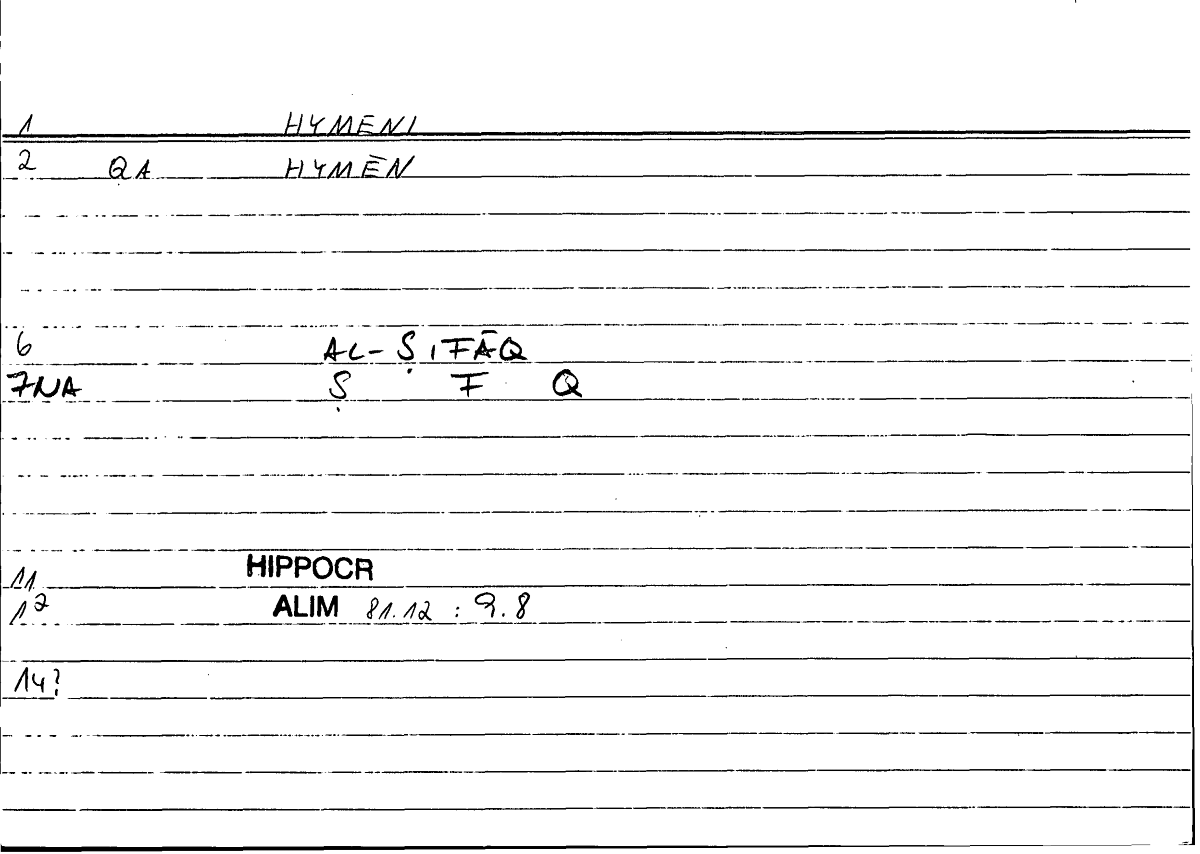 1 HYMENI
2 QA HYMĒN
6 AL-ṢIFĀQ
7NA Ṣ F Q
11 HIPPOCR
12 ALIM 81.12 : 9.8
14?